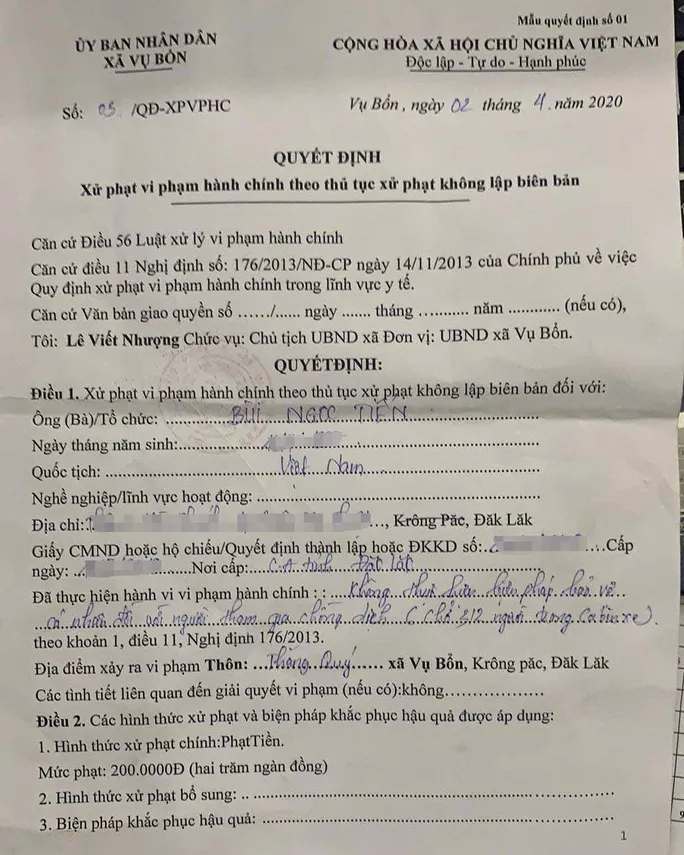 Mẫu quyết định số 01
ỦY BAN NHÂN DÂN
XÃ VỤ BỔN
CỘNG HÒA XÃ HỘI CHỦ NGHĨA VIỆT NAM
Độc lập - Tự do - Hạnh phúc
Số: 05 /QĐ-XPVPHC
Vụ Bổn, ngày 02 tháng 4 .năm 2020
QUYẾT ĐỊNH
Xử phạt vi phạm hành chính theo thủ tục xử phạt không lập biên bản
Căn cứ Điều 56 Luật xử lý vi phạm hành chính
Căn cứ điều 11 Nghị định số: 176/2013/NĐ-CP ngày 14/11/2013 của Chính phủ về việc
Quy định xử phạt vi phạm hành chính trong lĩnh vực y tế.
Căn cứ Văn bản giao quyền số ....../...... ngày ....... tháng ........... năm ............ (nếu có),
Tôi: Lê Viết Nhượng Chức vụ: Chủ tịch UBND xã Đơn vị: UBND xã Vụ Bổn.
QUYẾTĐỊNH:
Điều 1. Xử phạt vi phạm hành chính theo thủ tục xử phạt không lập biên bản đối với:
Ông (Bà)/Tổ chức: BÙI NGỌC TIẾN
Ngày tháng năm sinh:
Quốc tịch: Việt Nam
Nghề nghiệp/lĩnh vực hoạt động:
Địa chỉ: ..., Krông Păc, Đăk Lăk
Giấy CMND hoặc hộ chiếu/Quyết định thành lập hoặc ĐKKD số: ....Cấp
ngày: Nơi cấp: C.A tỉnh Đắk Lắk
Đã thực hiện hành vi vi phạm hành chính : : Không thực hiện biện pháp bảo vệ
cá nhân đối với người tham gia chống dịch (chở 312 người trong cabin xe).
theo khoản 1, điều 11, Nghị định 176/2013.
Địa điểm xảy ra vi phạm Thôn: ...Thăng Quý...... xã Vụ Bổn, Krông păc, Đăk Lăk
Các tình tiết liên quan đến giải quyết vi phạm (nếu có):không
Điều 2. Các hình thức xử phạt và biện pháp khắc phục hậu quả được áp dụng:
1. Hình thức xử phạt chính:PhạtTiền.
Mức phạt: 200.0000Đ (hai trăm ngàn đồng)
2. Hình thức xử phạt bổ sung: ..
3. Biện pháp khắc phục hậu quả:
1